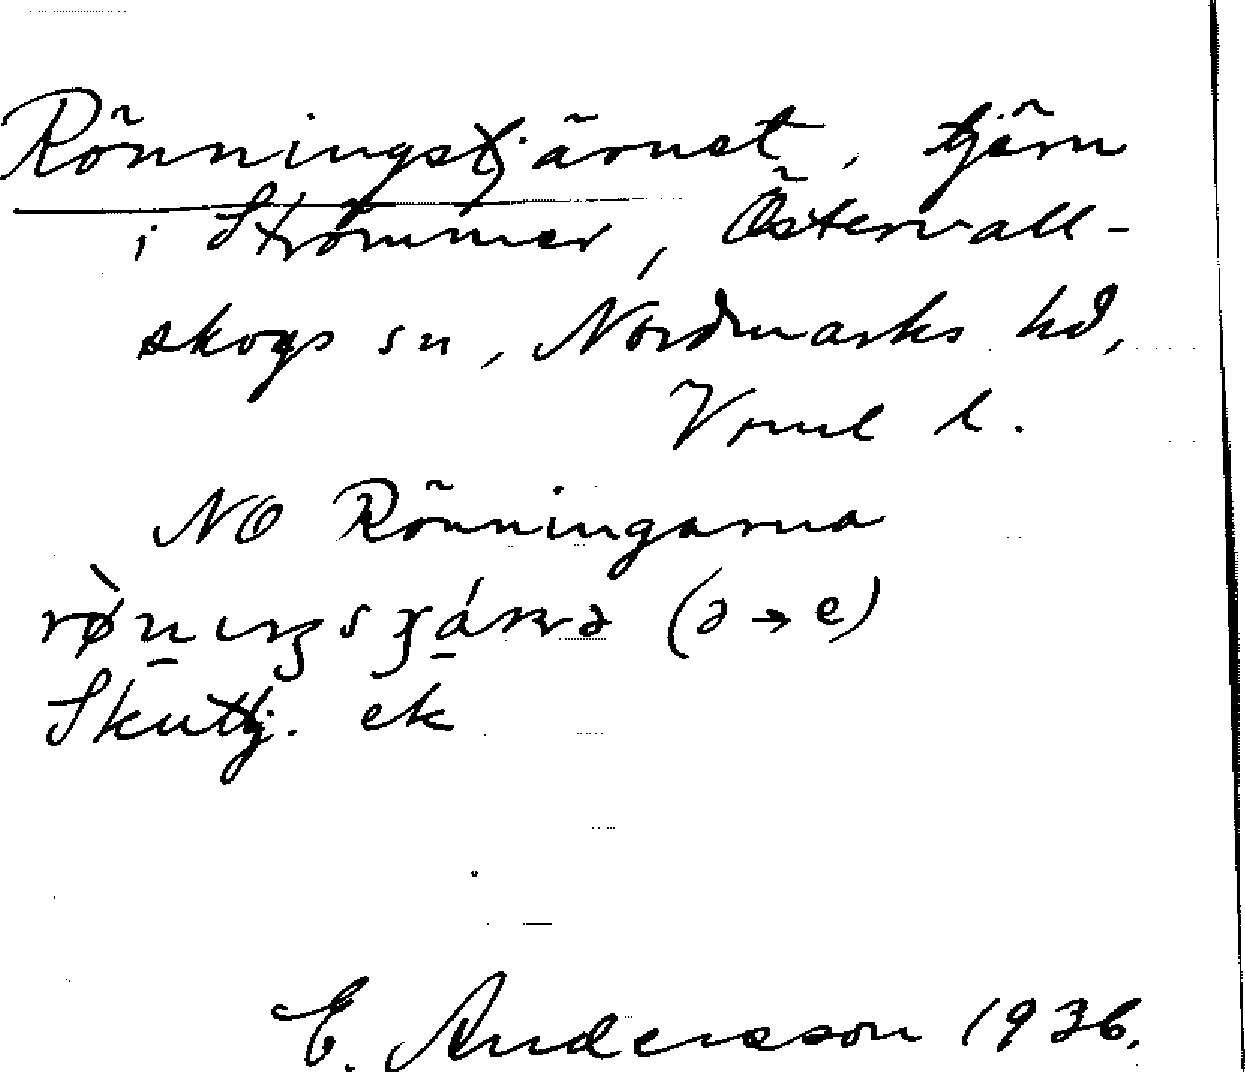 Rönningstjärnet, tjärn
i Strömmer, Östervall-
skogs sn, Nordmarks hd,
Vrml l.
NO Rönningarna
(ə → e)
Skuttj. ek
E. Andersson 1936.